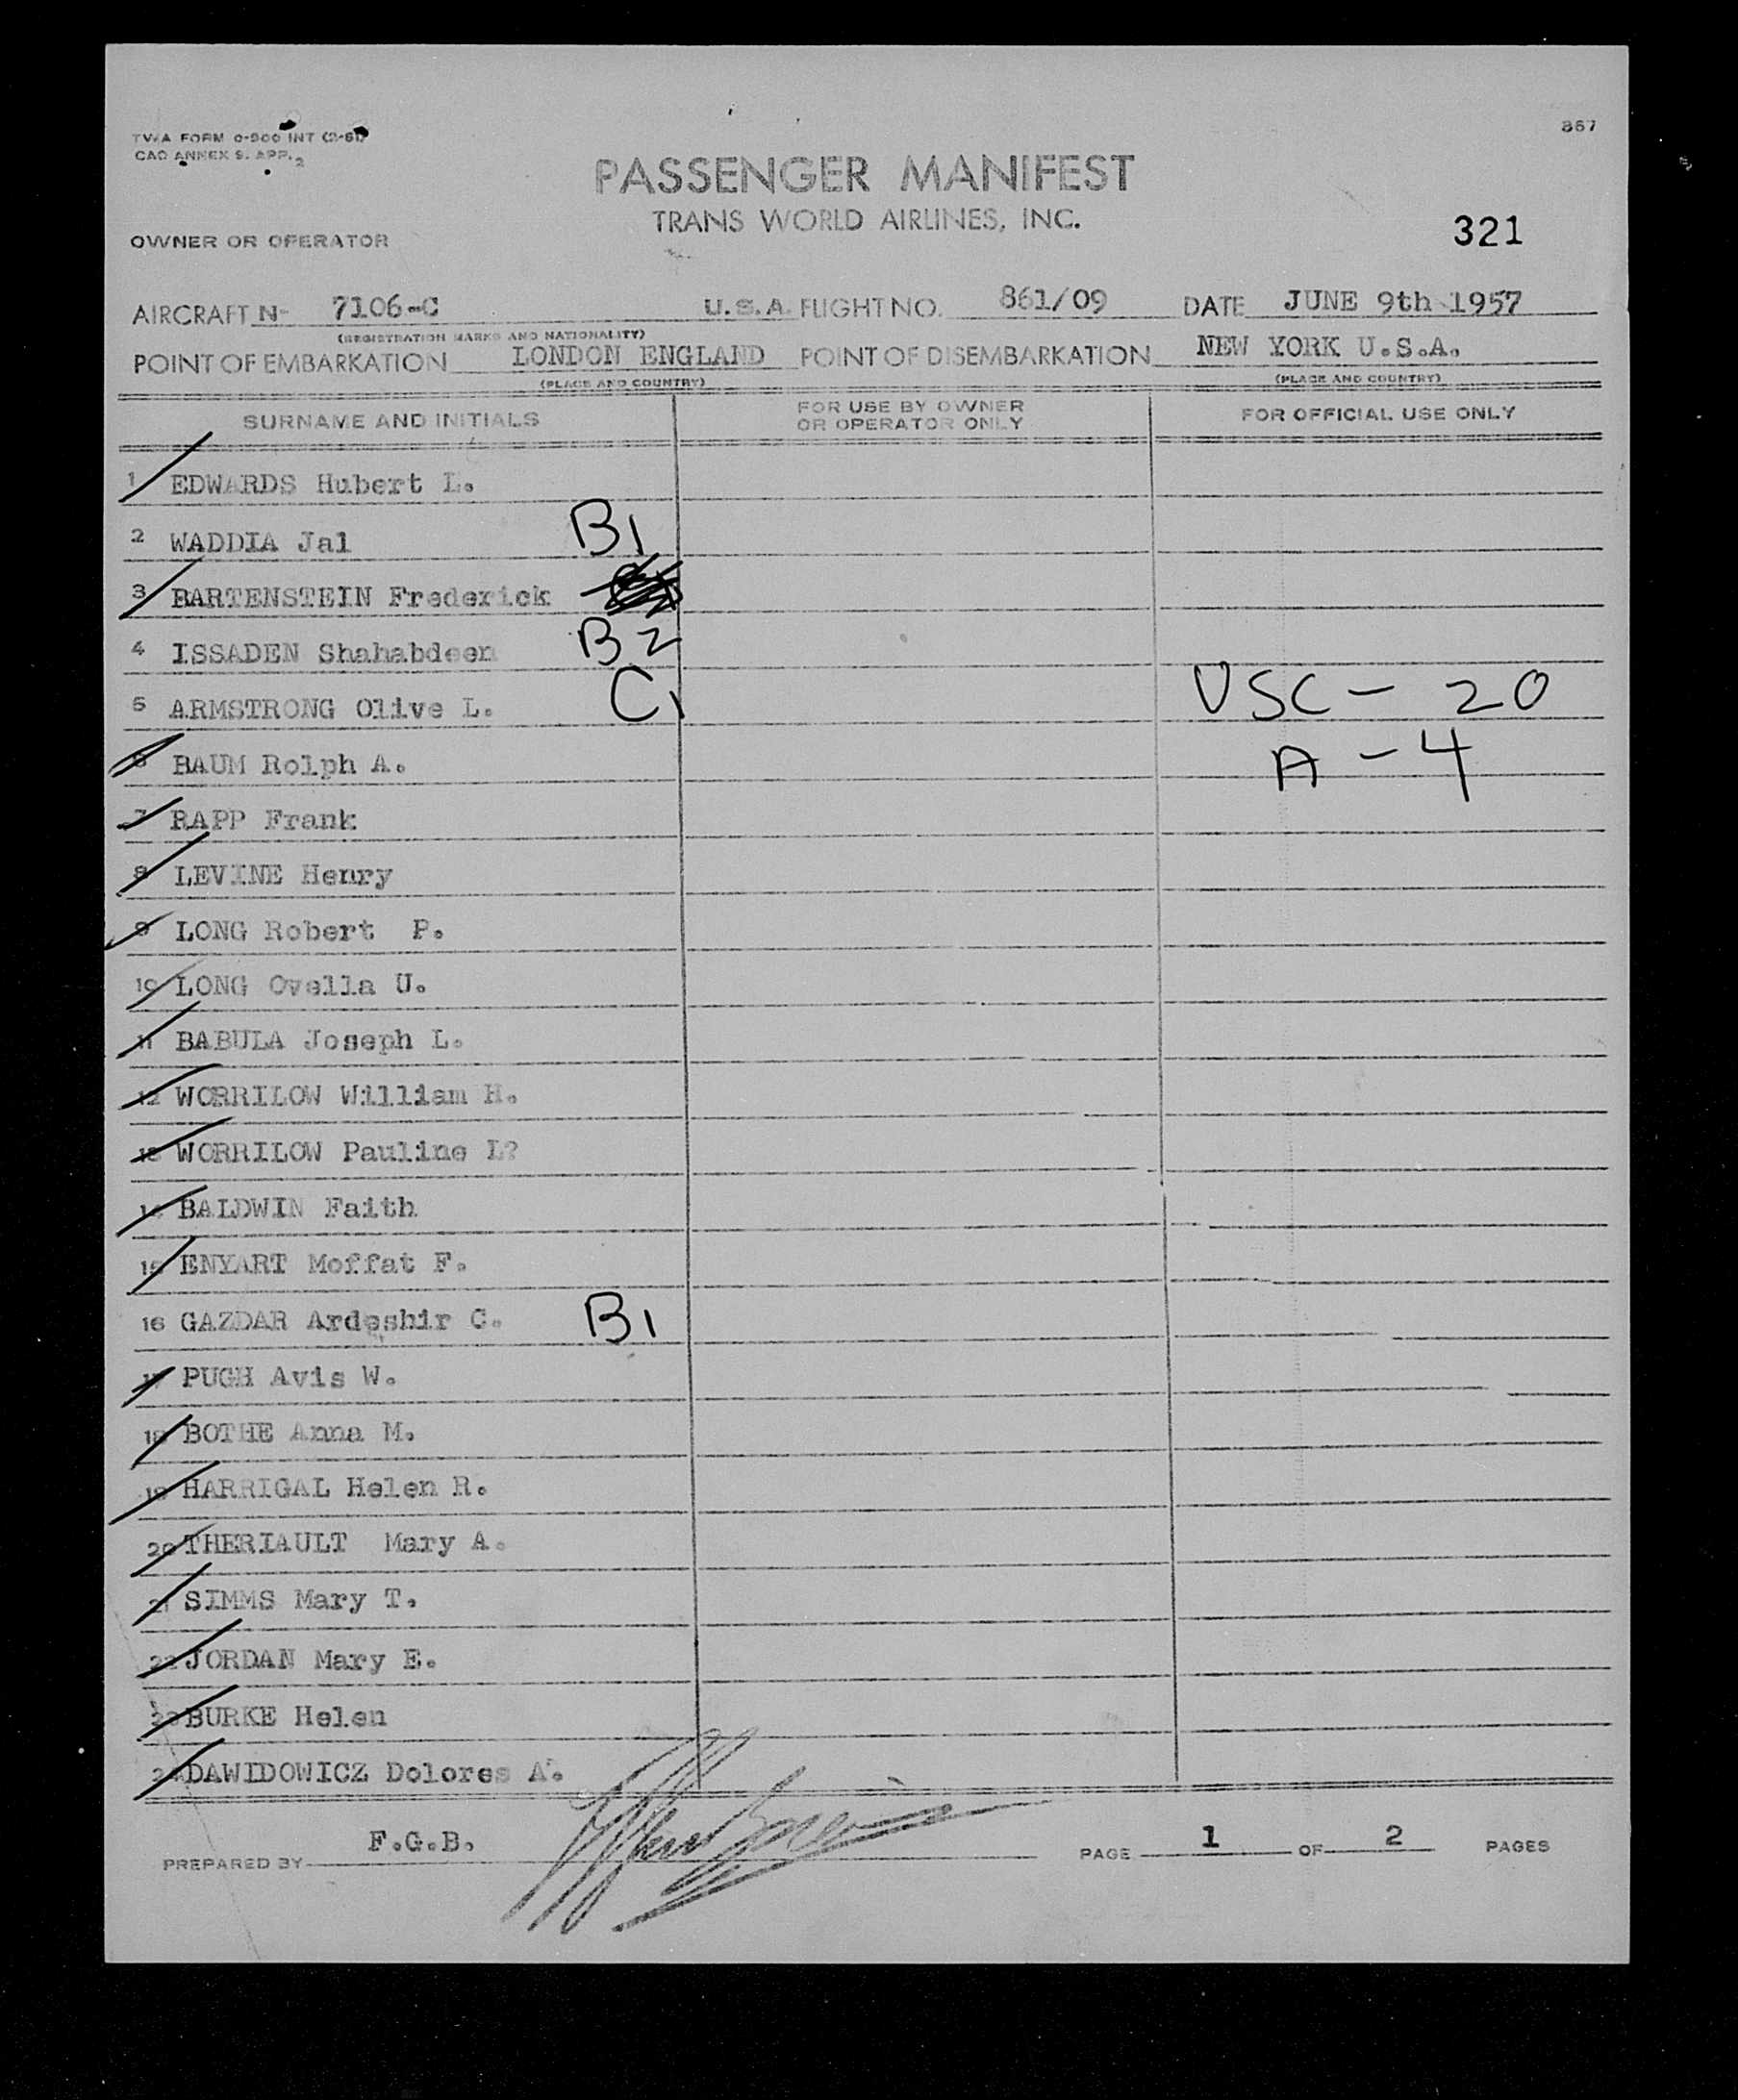 TWA FORM 0-900 INT (2-51)
CAO ANNEX 9. APP. 2
867
PASSENGER MANIFEST
TRANS WORLD AIRLINES, INC.
321
OWNER OR OPERATOR
AIRCRAFT N- 7106-C U.S.A. FLIGHT NO. 861/09 DATE JUNE 9th 1957
(REGISTRATION MARKS AND NATIONALITY)
POINT OF EMBARKATION LONDON ENGLAND POINT OF DISEMBARKATION NEW YORK U.S.A.
(PLACE AND COUNTRY) (PLACE AND COUNTRY)
SURNAME AND INITIALS FOR USE BY OWNER OR OPERATOR ONLY FOR OFFICIAL USE ONLY
1 EDWARDS Hubert L.
2 WADDIA Jal B1
3 BARTENSTEIN Frederick
4 ISSADEN Shahabdeen B2
5 ARMSTRONG Olive L. C1 USC - 20
6 BAUM Rolph A. A - 4
7 RAPP Frank
8 LEVINE Henry
9 LONG Robert P.
10 LONG Ovella U.
11 BABULA Joseph L.
12 WORRILOW William H.
13 WORRILOW Pauline L?
14 BALDWIN Faith
15 ENYART Moffat F.
16 GAZDAR Ardeshir C. B1
17 PUGH Avis W.
18 BOTHE Anna M.
19 HARRIGAL Helen R.
20 THERIAULT Mary A.
21 SIMMS Mary T.
22 JORDAN Mary E.
23 BURKE Helen
24 DAWIDOWICZ Dolores A.
PREPARED BY F.G.B. PAGE 1 OF 2 PAGES